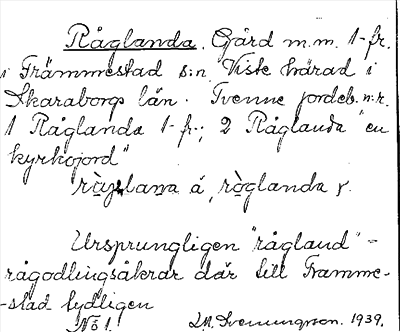 Råglanda. Gård m.m. 1-fr.
i Främmestad s:n, Viste härad i
Skaraborgs län. Tvenne jordeb.n:r.
1 Råglanda 1-fr.; 2 Råglanda "en
kyrkojord"
á, ròglanda y.
Ursprungligen "rågland" -
rågodlingsåkrar där till Framme-
-stad tydligen
No 1. Svenungsson. 1939.